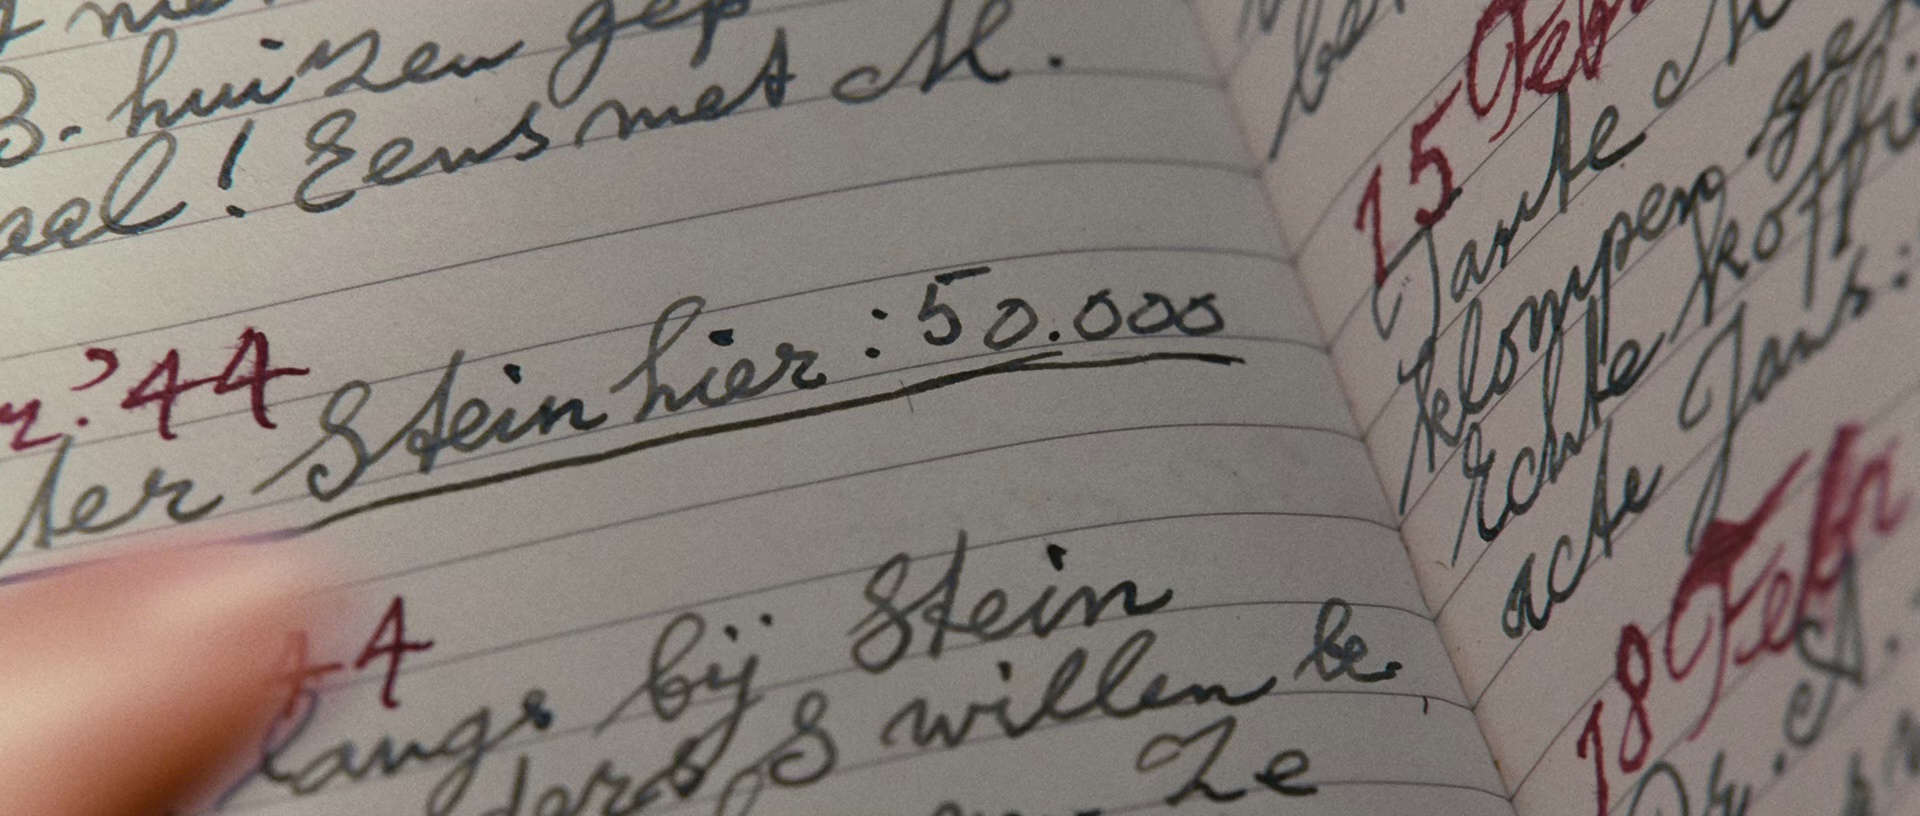 B. huizen gep
aal! Eens met M.
'44
ter Stein hier: 50.000
44
langs bij Stein
ders S willen be.
Ze
15 Feb
Tante M
klompen ge
Echte koffi
acte Jans:
18 Febr
Dr. A.